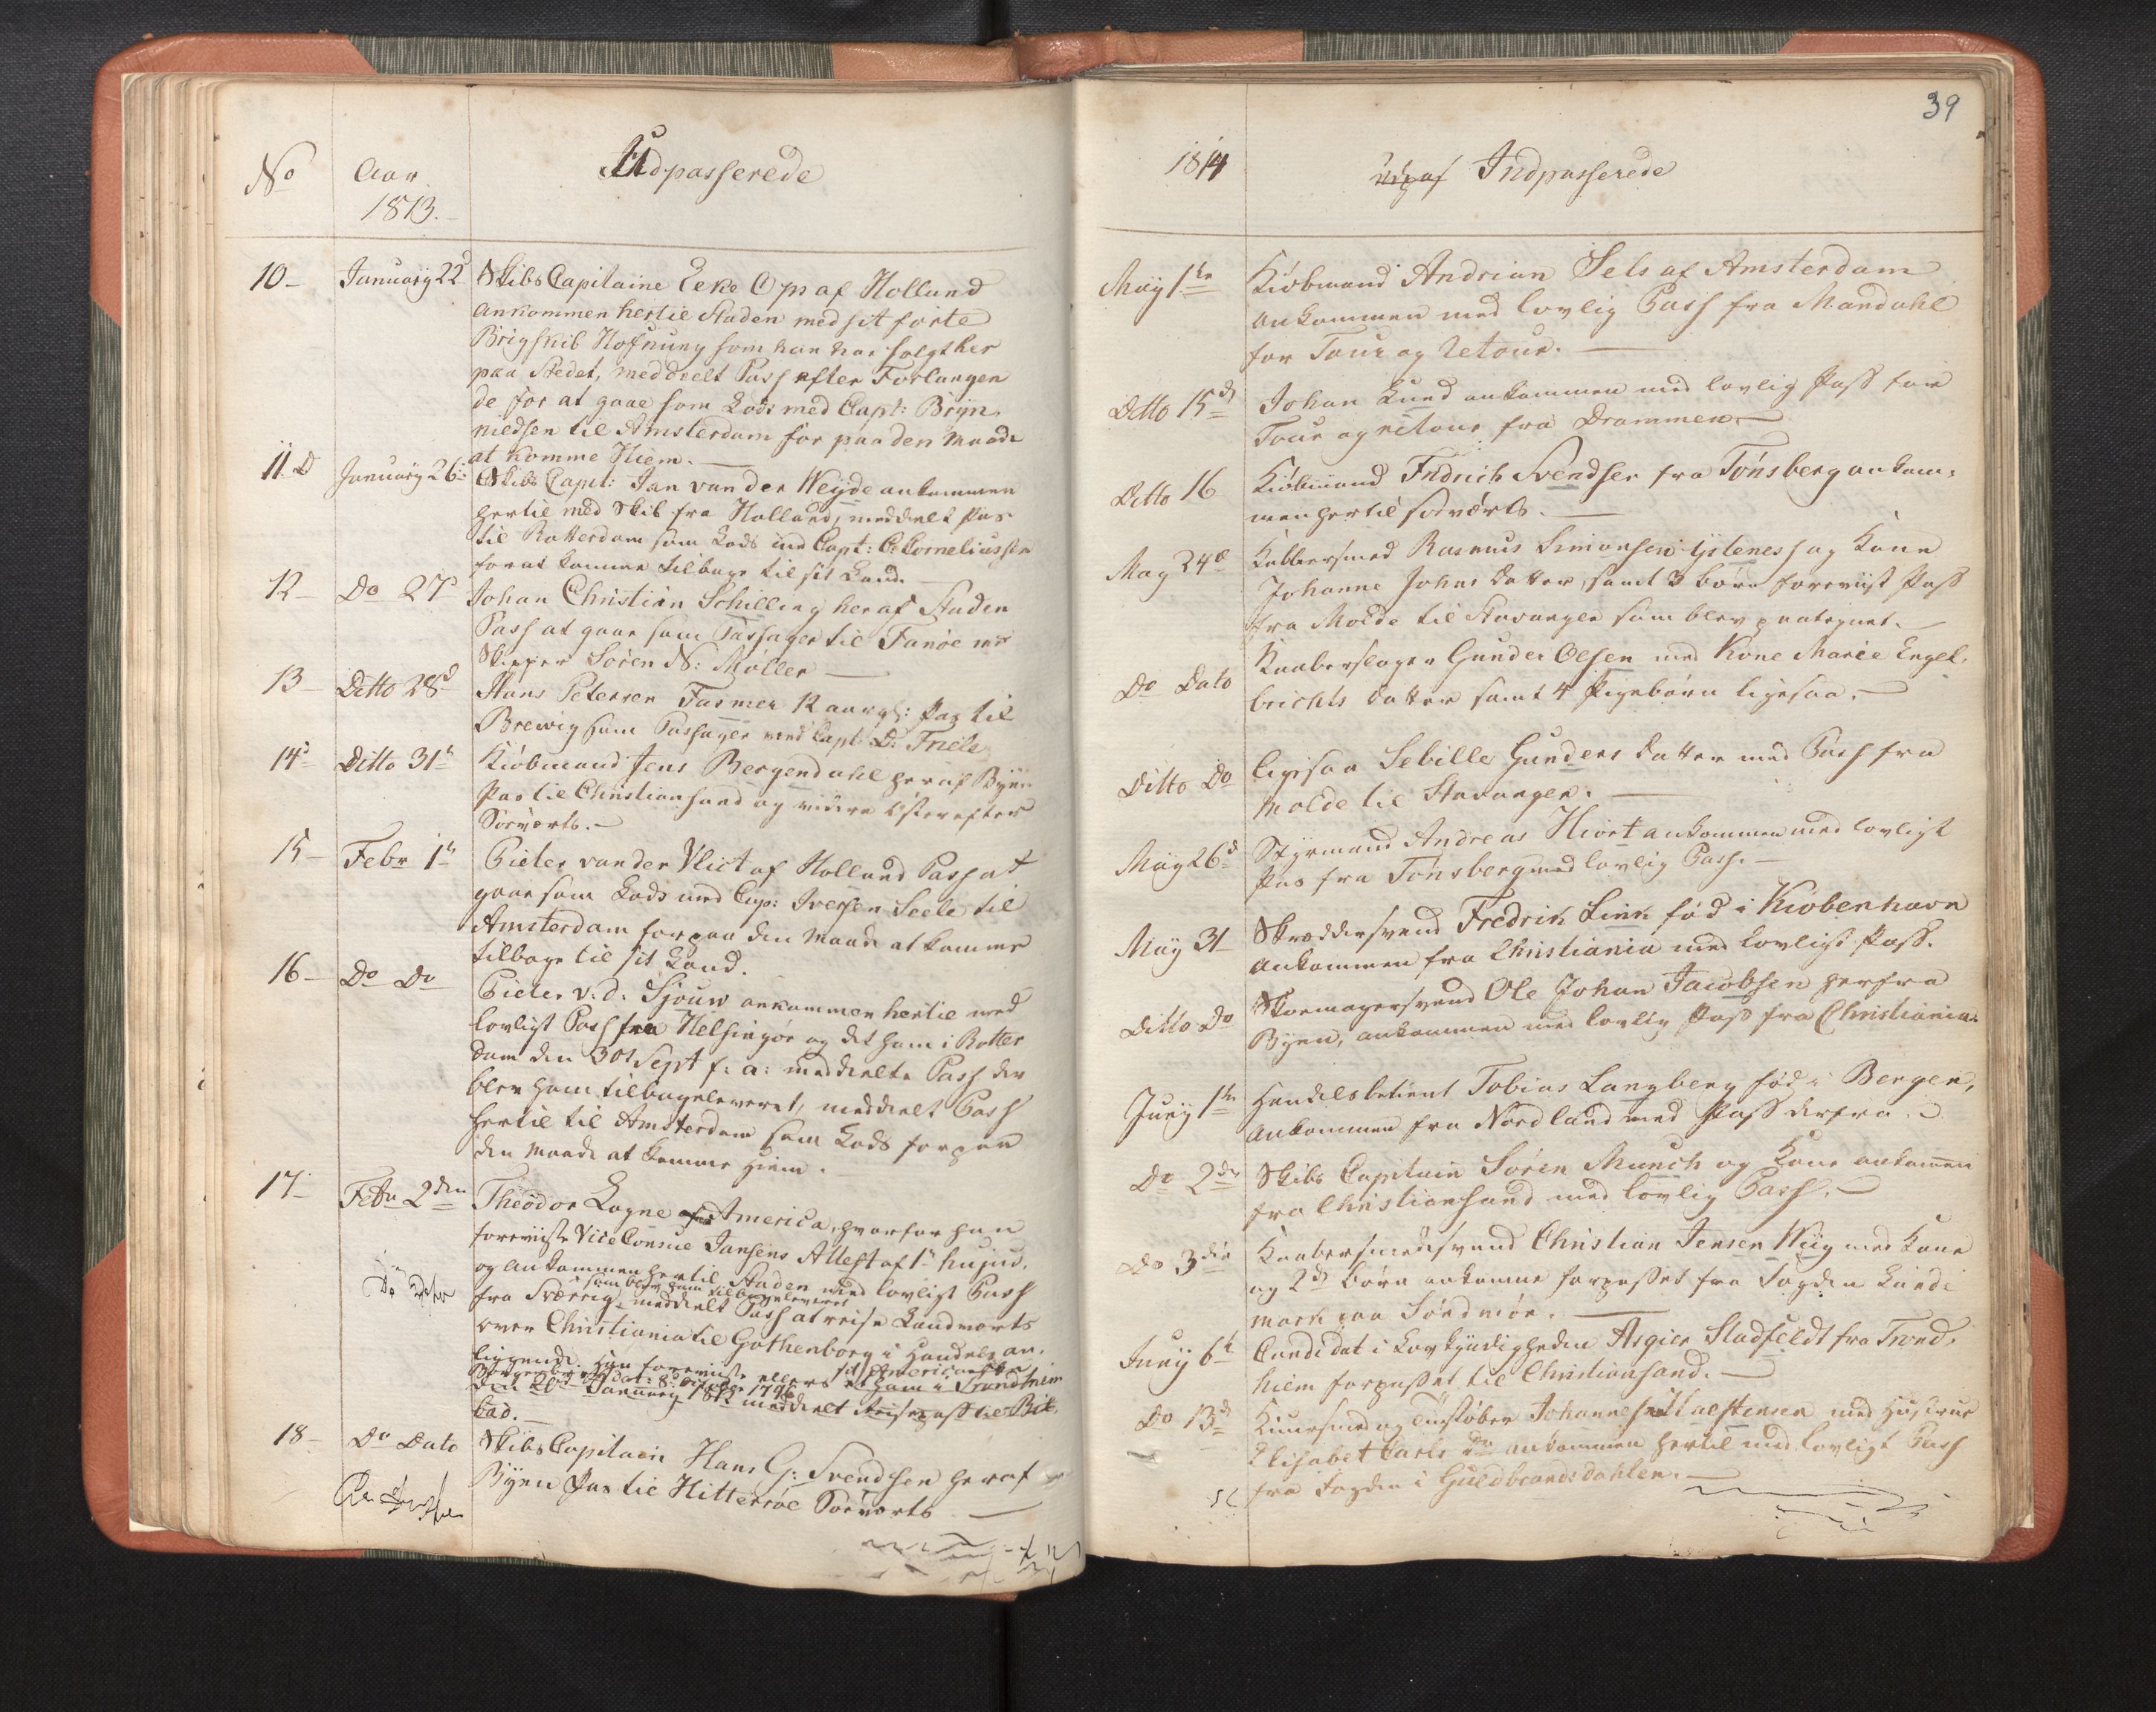 No
Aar
1813.
Udpasserede
10 - January 22d Skibs Capitaine Eeke Op af Holland
ankommen hertil Staden med sit førte
Brigskib Hofnung som han har solgt her
paa Stedet, meddeelt Pass efter Forlangen
de for at gaae som Lods med Capt: Bryn,
nildsen til Amsterdam for paa den Maade
at komme Hiem. -
11. D January 26 Skibs Capt: Jan van der Weyde ankommen
hertil med Skib fra Holland, meddeelt Pas
til Rotterdam som Lods med Capt: C: Corneliussen
for at komme tilbage til sit Land.
12 - Do 27 Johan Christian Schilling her af Staden
Pass at gaae som Passager til Fanöe med
Skipper Sören N: Møller -
13 - Ditto 28d Hans Petersen Fasmer 12 aar gl: Pas til
Brewig som Passager med Capt D: Friele
14 - Ditto 31 Kiøbmand Jens Bergendahl her af Byen
Pas til Christiansand og videre Østerefter
Søeværts. -
15 - Febr 1 Pieter van der Vlict af Holland Pass at
gaae som Lods med Cap: Iversen Seele til
Amsterdam for paa den Maade at komme
tilbage til sit Land.
16 - Do Do Pieter v. d. Sjouw ankommen hertil med
lovligt Pass fra Helsingör og det ham i Rotter
dam den 30t Sept f: a: meddeelte Pass der
blev ham tilbageleveret, meddeelt Pass
hertil til Amsterdam som Lods for paa
den Maade at komme Hiem.
17 - Febr 2den Theodor Logne America, hvorfor han
foreviiste Vice Consul Jansens Attest af 1 hujus,
og ankommen hertil Staden med lovligt Pass
som blev ham tilbageleveret
fra Sverrig, meddeelt Pass at reise Landværts
over Christiania til Gothenborg i Handels an,
liggende. Han foreviiste ellers sit Americanske
Borgerbrev dat: 8 1796 et ham i Trondhiem
den 20 January 1812 meddeelt Reisepass til Bil,
bad. -
18 - Do Dato Skibs Capitain Hans G: Svendsen her af
Byen Pas til Hitterøe Søeværts -
39
1814
Indpasserede
May 1te Kiøbmand Andrian Sels af Amsterdam
ankommen med lovlig Pass fra Mandahl
for Tour og retour. -
Ditto 15d Johan Lund ankommen med lovlig Pass for
Tour og retour fra Drammen -
Ditto 16 Kiøbmand Fridrich Svendsen fra Tönsberg ankom,
men hertil søeværts. -
May 24d Kabbersmed Rasmus Simonsen Ystenes og Kone
Johanne Johns datter, samt 3 børn foreviist Pass
fra Molde til Stavanger som blev paategnet. -
Do Dato Kaaberslager Gunder Olsen med Kone Marie Engel,
brichts datter samt 4 Pigebørn ligesaa. -
Ditto Do Ligesaa Sebille Gunders datter med Pass fra
Molde til Stavanger. -
May 26d Styrmand Andreas Hiort ankommen med lovligt
Pas fra Tönsberg med lovlig Pass. -
May 31 Skræddersvend Fredrik Link fød i Kiøbenhavn
ankommen fra Christiania med lovligt Pass.
Ditto Do Skomagersvend Ole Johan Jacobsen herfra
Byen, ankommen med lovlig Pass fra Christiania.
Juny 1te Handelsbetient Tobias Langberg fød i Bergen,
ankommen fra Nordland med Pass derfra.
Do 2den Skibs Capitain Sören Munch og Kone ankommen
fra Christiansand med lovlig Pass. -
Do 3die Kaabersmedsvend Christian Jensen Wiig med Kone
og 2de børn ankomne forpasset fra Fogden Linde
mark paa Söndmör. -
Juny 6t Candidat i Lovkyndigheden Asgier Stadfeldt fra Trond,
hiem forpasset til Christiansand. -
Do 13d Knivsmed og Tinstøber Johannes Halstensen med Hustrue
Elisabet Carls do ankommen hertil med lovligt Pass
fra Fogden i Guldbrandsdahlen. -